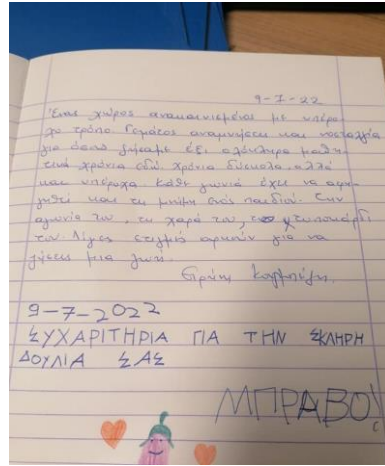 9-7-22
Ένας χώρος ανακαινισμένος με υπέρο
χο τρόπο. Γεμάτος αναμνήσεις και νοσταλγία
για όσους ζήσαμε έξι ολόκληρα μαθη
τικά χρόνια εδώ. Χρόνια δύσκολα αλλά
και υπέροχα. Κάθε γωνιά έχει να αφη
γηθεί και τη μνήμη ενός παιδιού. Την
αγωνία του, τη χαρά του, το χτυποκάρδι
του. Λίγες στιγμές αρκούν για να
ζήσεις μια ζωή.
Ειρήνη
9-7-2022
ΣΥΧΑΡΙΤΗΡΙΑ ΓΙΑ ΤΗΝ ΣΚΛΗΡΗ
ΔΟΥΛΙΑ ΣΑΣ
ΜΠΡΑΒΟ!